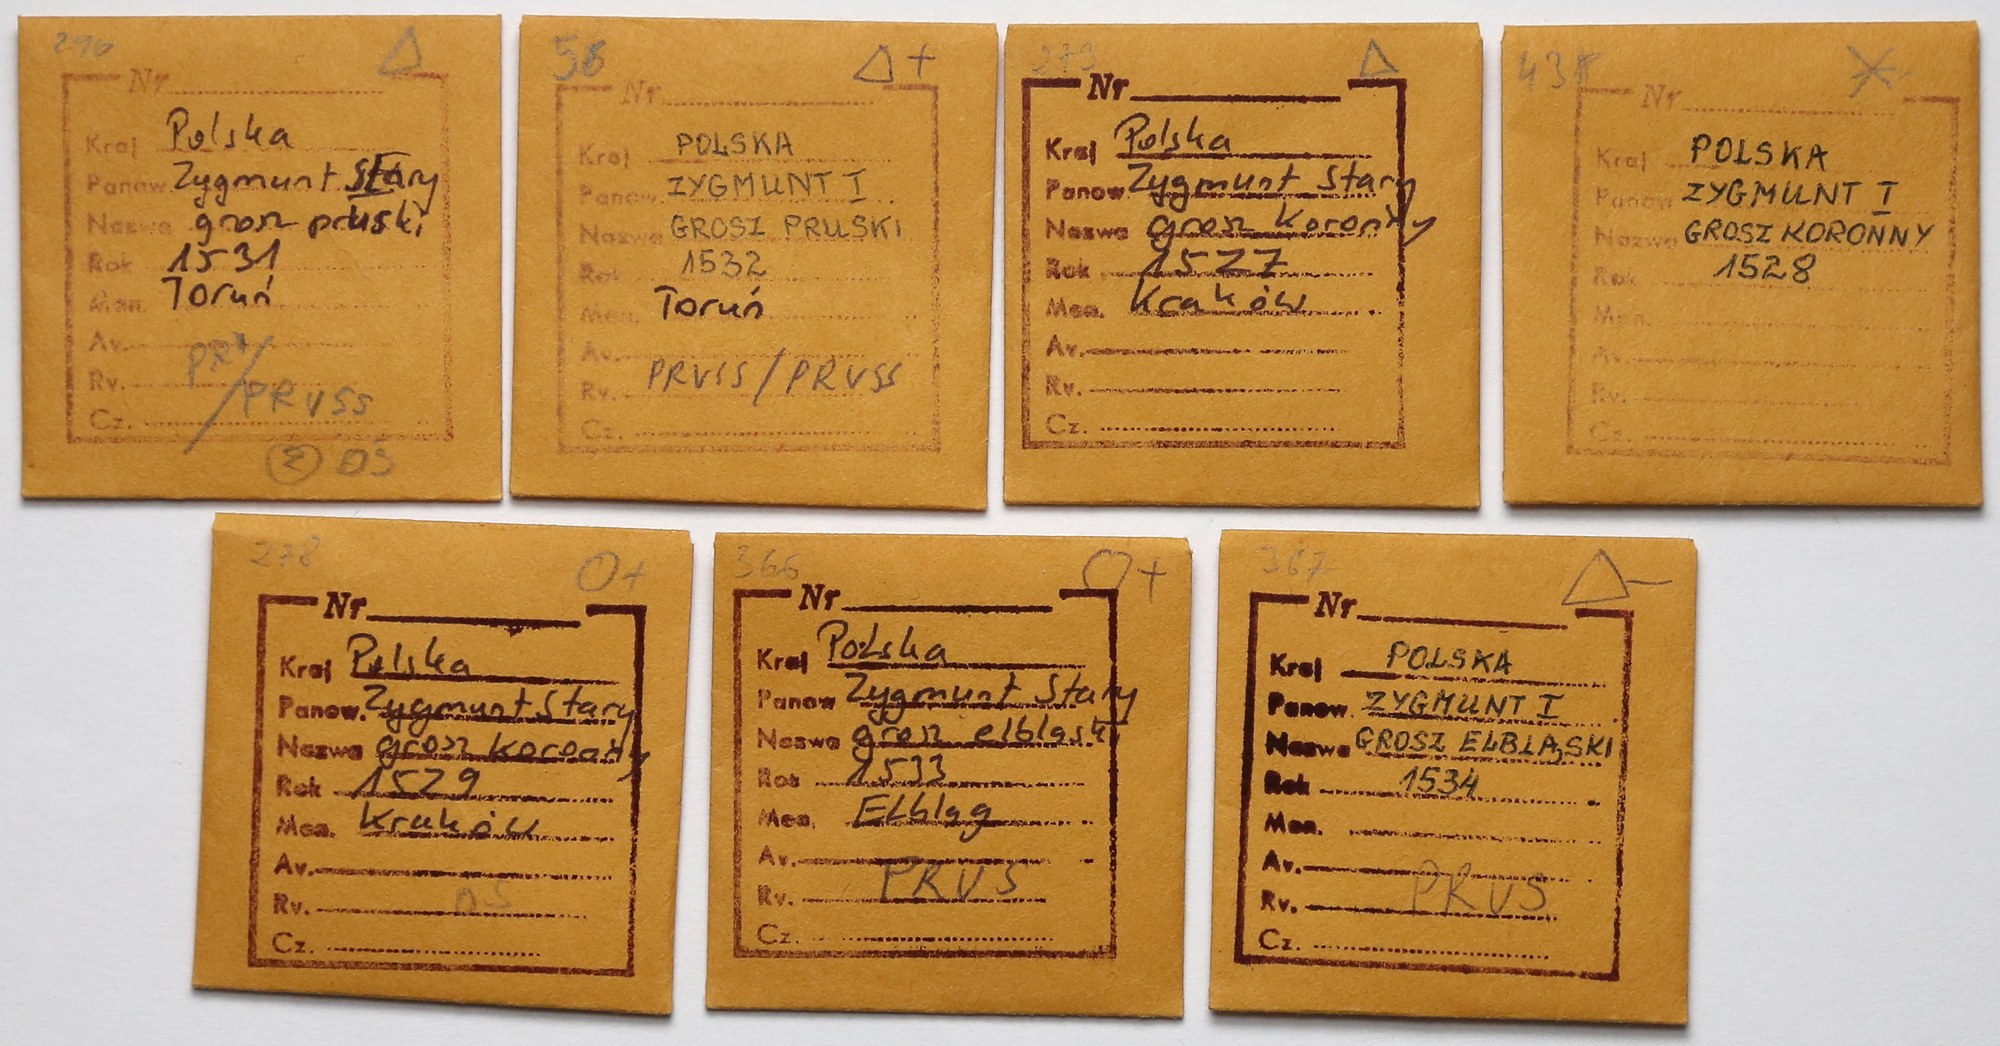 290
Nr
Kraj Polska
Panow. Zygmunt Stary
Nazwa grosz pruski
Rok 1531
Men. Toruń
Av.
Rv. PR / PRVSS
Cz.
2 DS
56 +
Nr
Kraj POLSKA
Panow. ZYGMUNT I
Nazwa GROSZ PRUSKI
Rok 1532
Men. Toruń
Av.
Rv. PRVSS / PRVSS
Cz.
273
Nr
Kraj Polska
Panow. Zygmunt Stary
Nazwa grosz koronny
Rok 1527
Men. Kraków
Av.
Rv.
Cz.
Nr
Kraj POLSKA
Panow ZYGMUNT I
Nazwa GROSZ KORONNY
Rok 1528
Men.
Av.
Rv.
Cz.
278 O+
Nr
Kraj Polska
Panow. Zygmunt Stary
Nazwa grosz koronny
Rok 1529
Men. Kraków
Av.
Rv. DS
Cz.
366 O+
Nr
Kraj Polska
Panow Zygmunt Stary
Nazwa grosz elbląski
Rok 1533
Men. Elbląg
Av.
Rv. PRVS
Cz.
367 -
Nr
Kraj POLSKA
Panow. ZYGMUNT I
Nazwa GROSZ ELBLĄSKI
Rok 1534
Men.
Av.
Rv. PRVS
Cz.